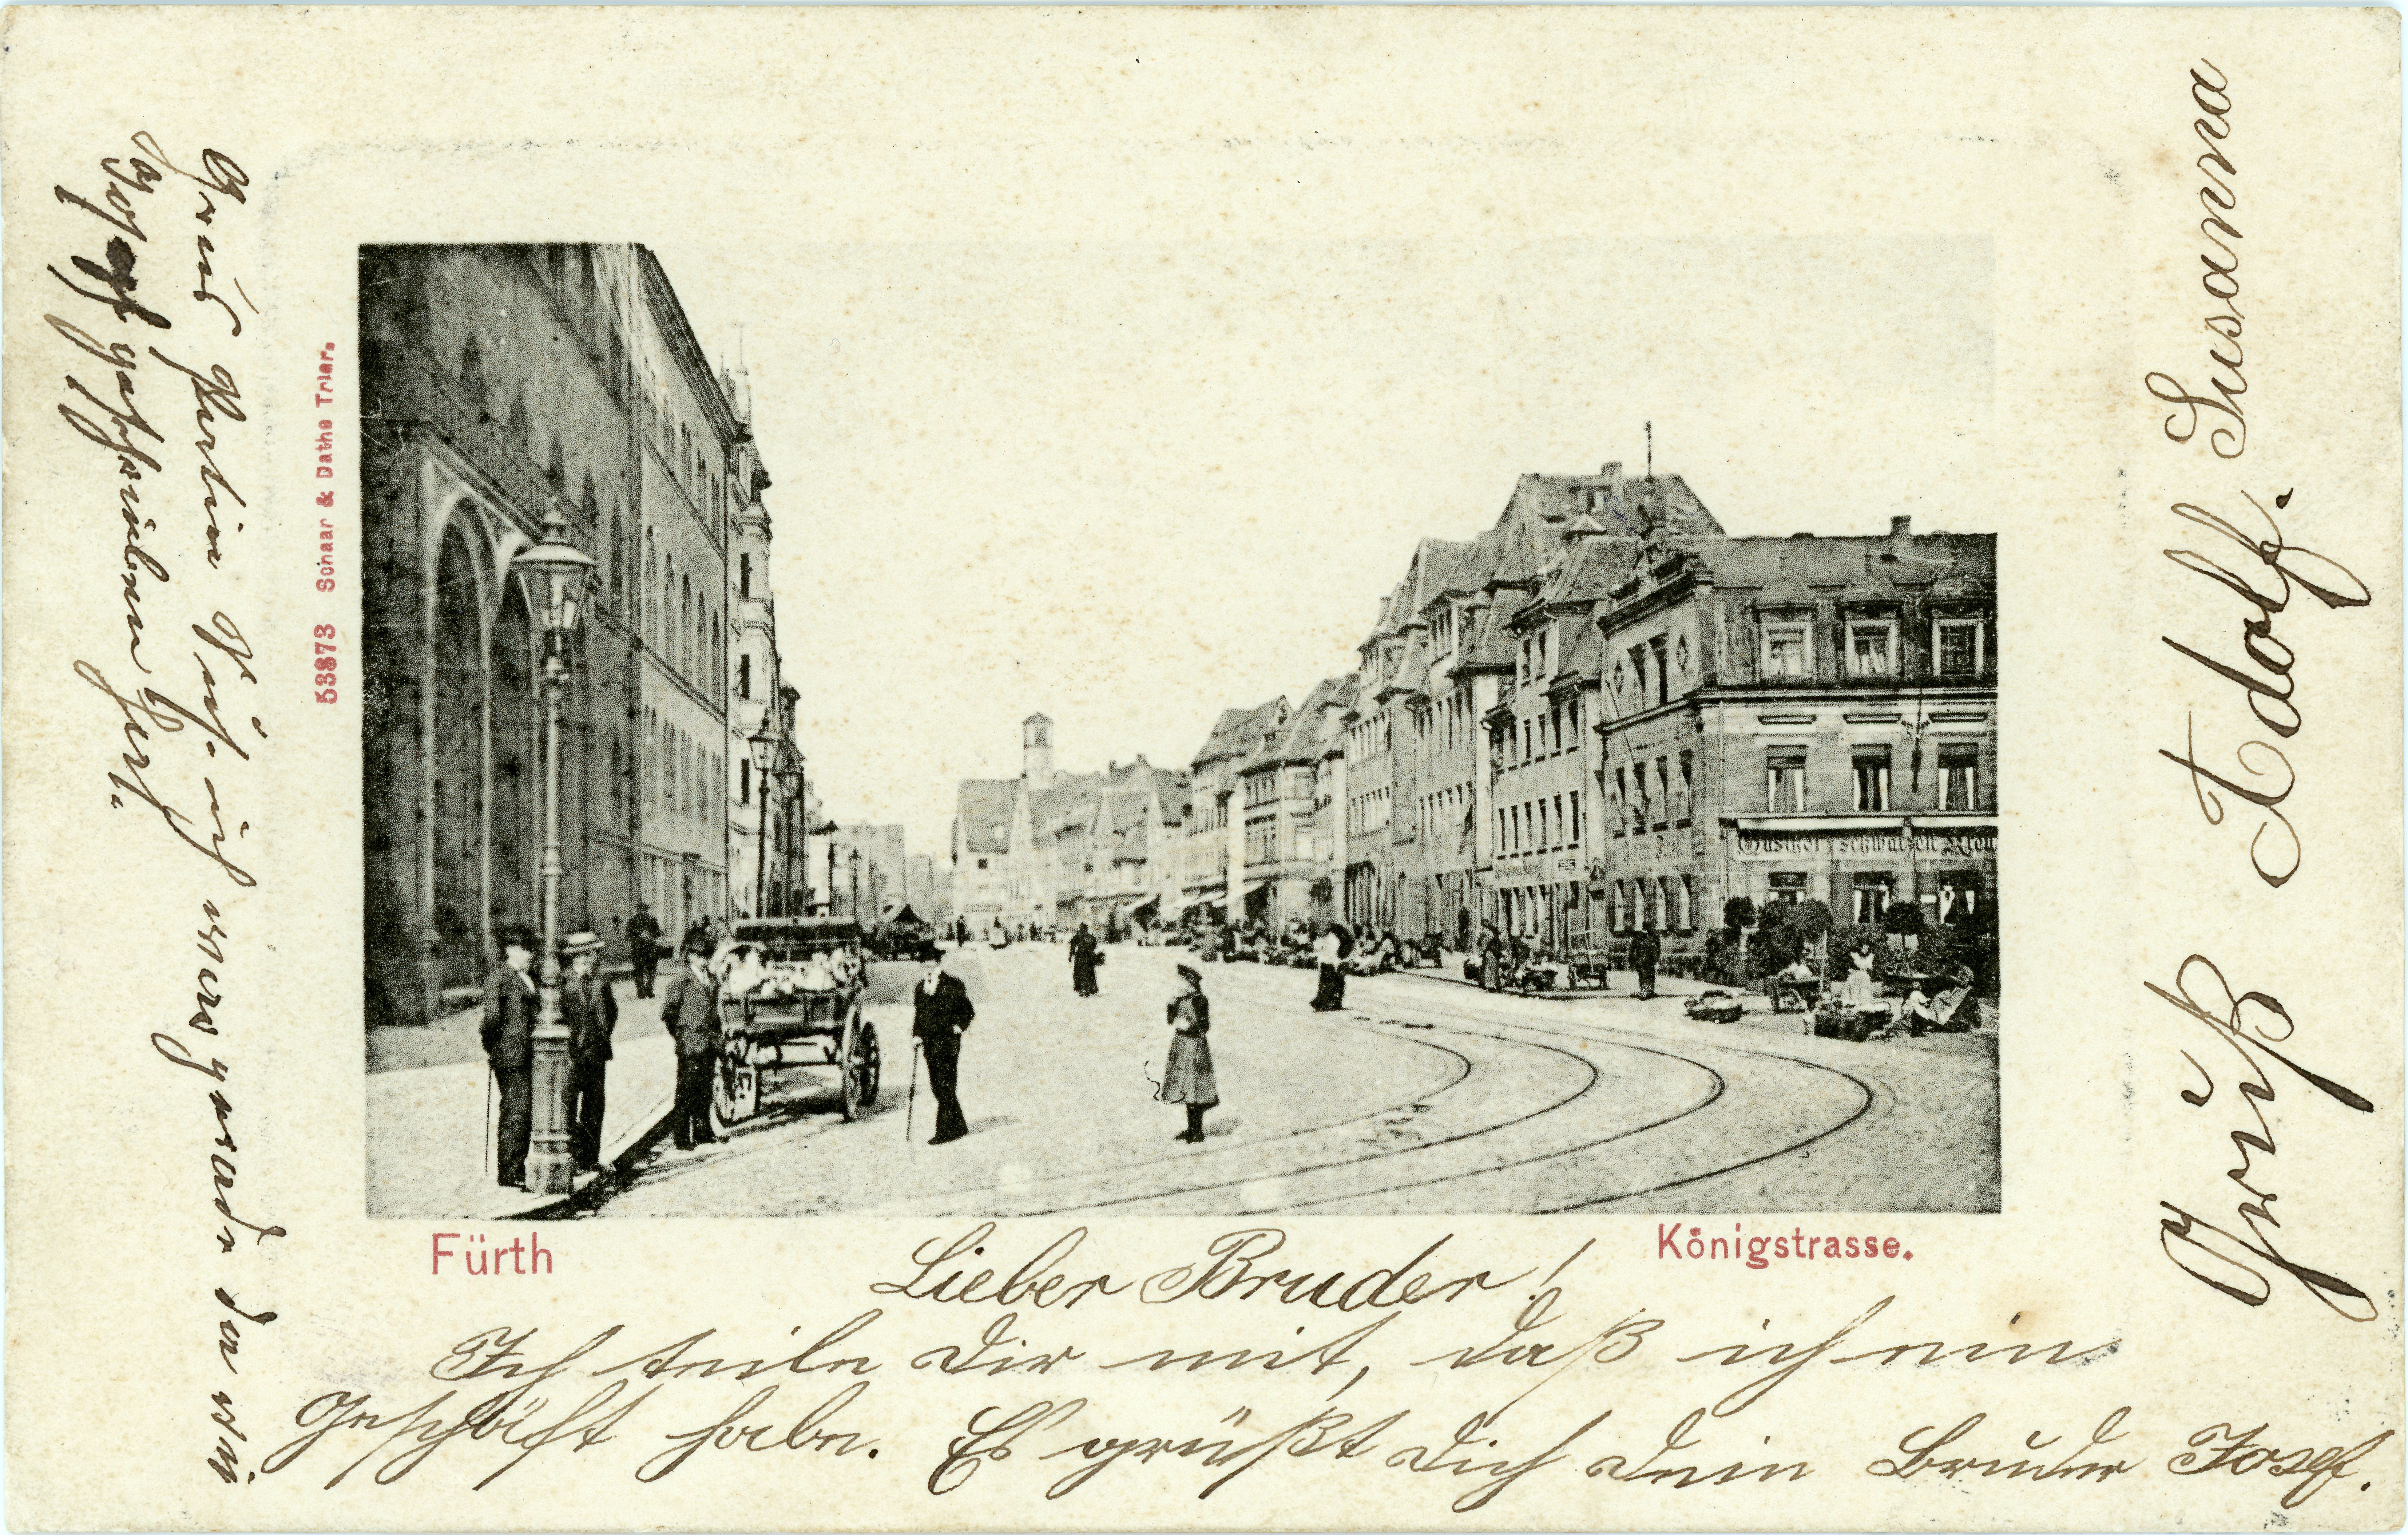 53873 Schaar & Dathe Trier.
Gasthof z. schwarzen Kreu
Fürth
Königstrasse.
Lieber Bruder!
Ich teile Dir mit, daß ich ein
Geschäft habe. Es grüßt Dich Dein Bruder Josef.
Gruß Adolf. Susanna
Gruß ich war gerade da wie
Josef geschrieben hat.